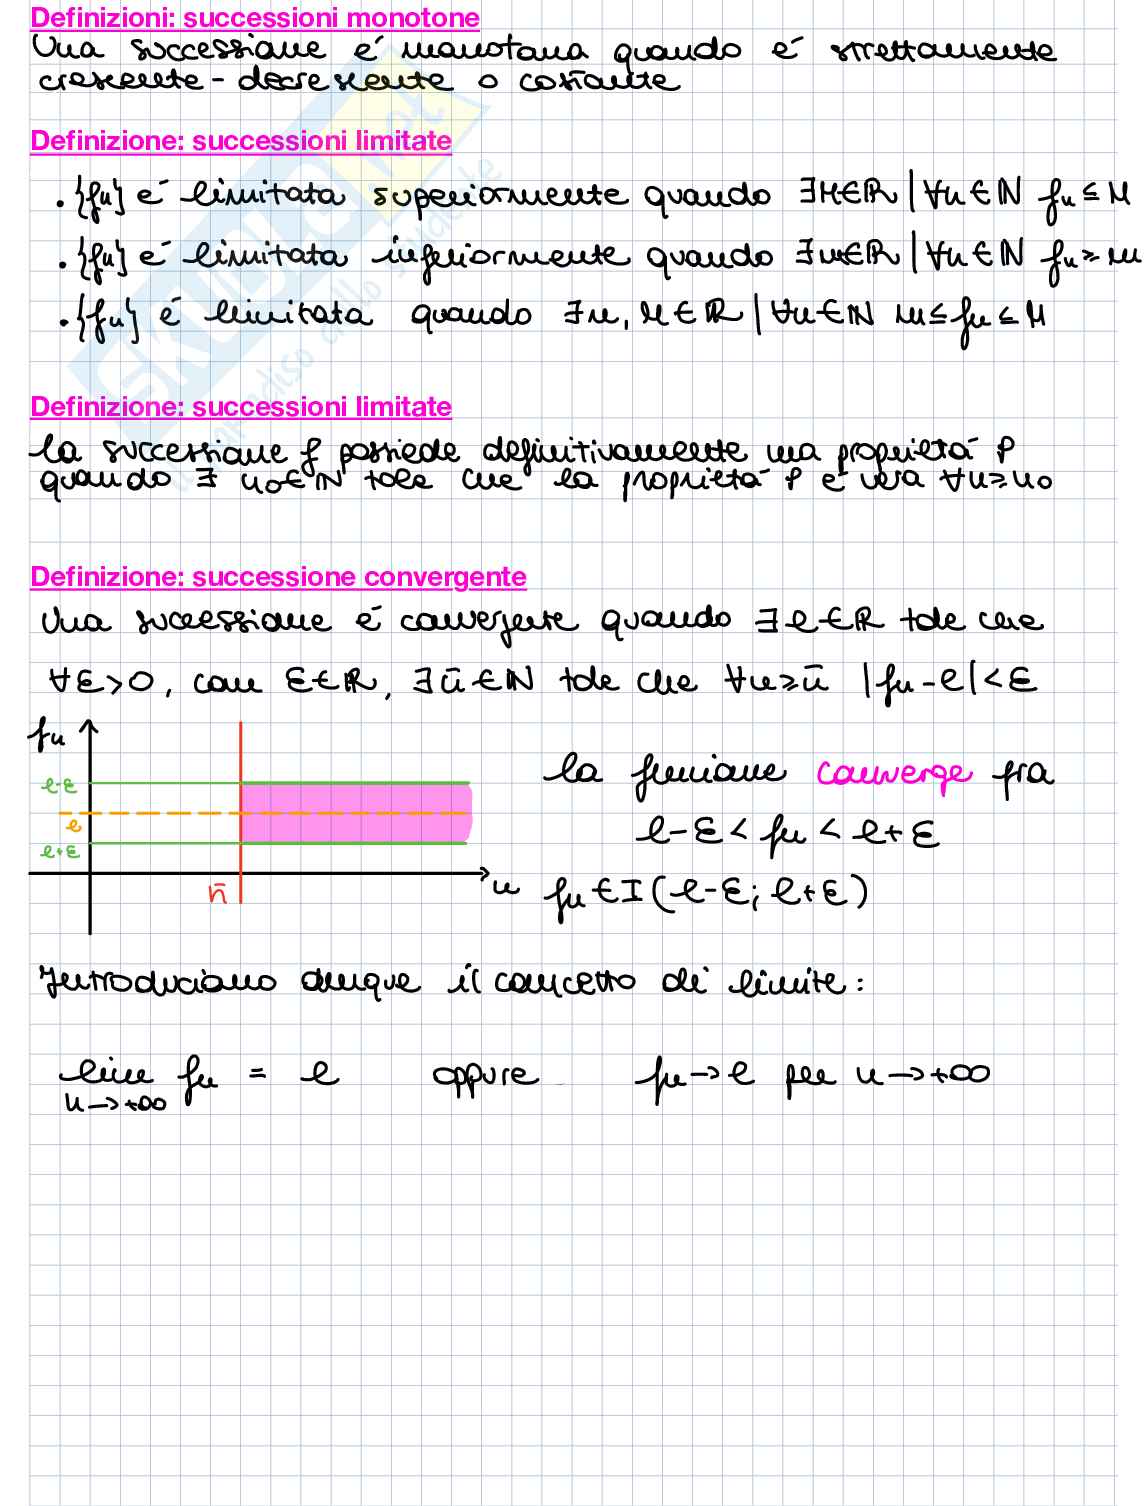 Definizioni: successioni monotone
Una successione é monotona quando é strettamente
crescente - decrescente o costante
Definizione: successioni limitate
. {fn} é limitata superiormente quando ∃M∈ℝ | ∀n∈ℕ fn ≤ M
. {fn} é limitata inferiormente quando ∃m∈ℝ | ∀n∈ℕ fn ≥ m
. {fn} é limitata quando ∃m, M∈ℝ | ∀n∈ℕ m ≤ fn ≤ M
Definizione: successioni limitate
la successione f possiede definitivamente una proprietá P
quando ∃ n0∈ℕ tale che la proprietá P é vera ∀n≥n0
Definizione: successione convergente
Una successione é convergente quando ∃ l∈ℝ tale che
∀ε>0, con ε∈ℝ, ∃n̄∈ℕ tale che ∀n≥n̄ |fn - l| < ε
fn
l-ε
l
l+ε
n̄
n
la funzione converge fra
l-ε < fn < l+ε
fn ∈ I(l-ε; l+ε)
Introduciamo dunque il concetto di limite:
lim fn = l oppure fn → l per n → +∞
n → +∞